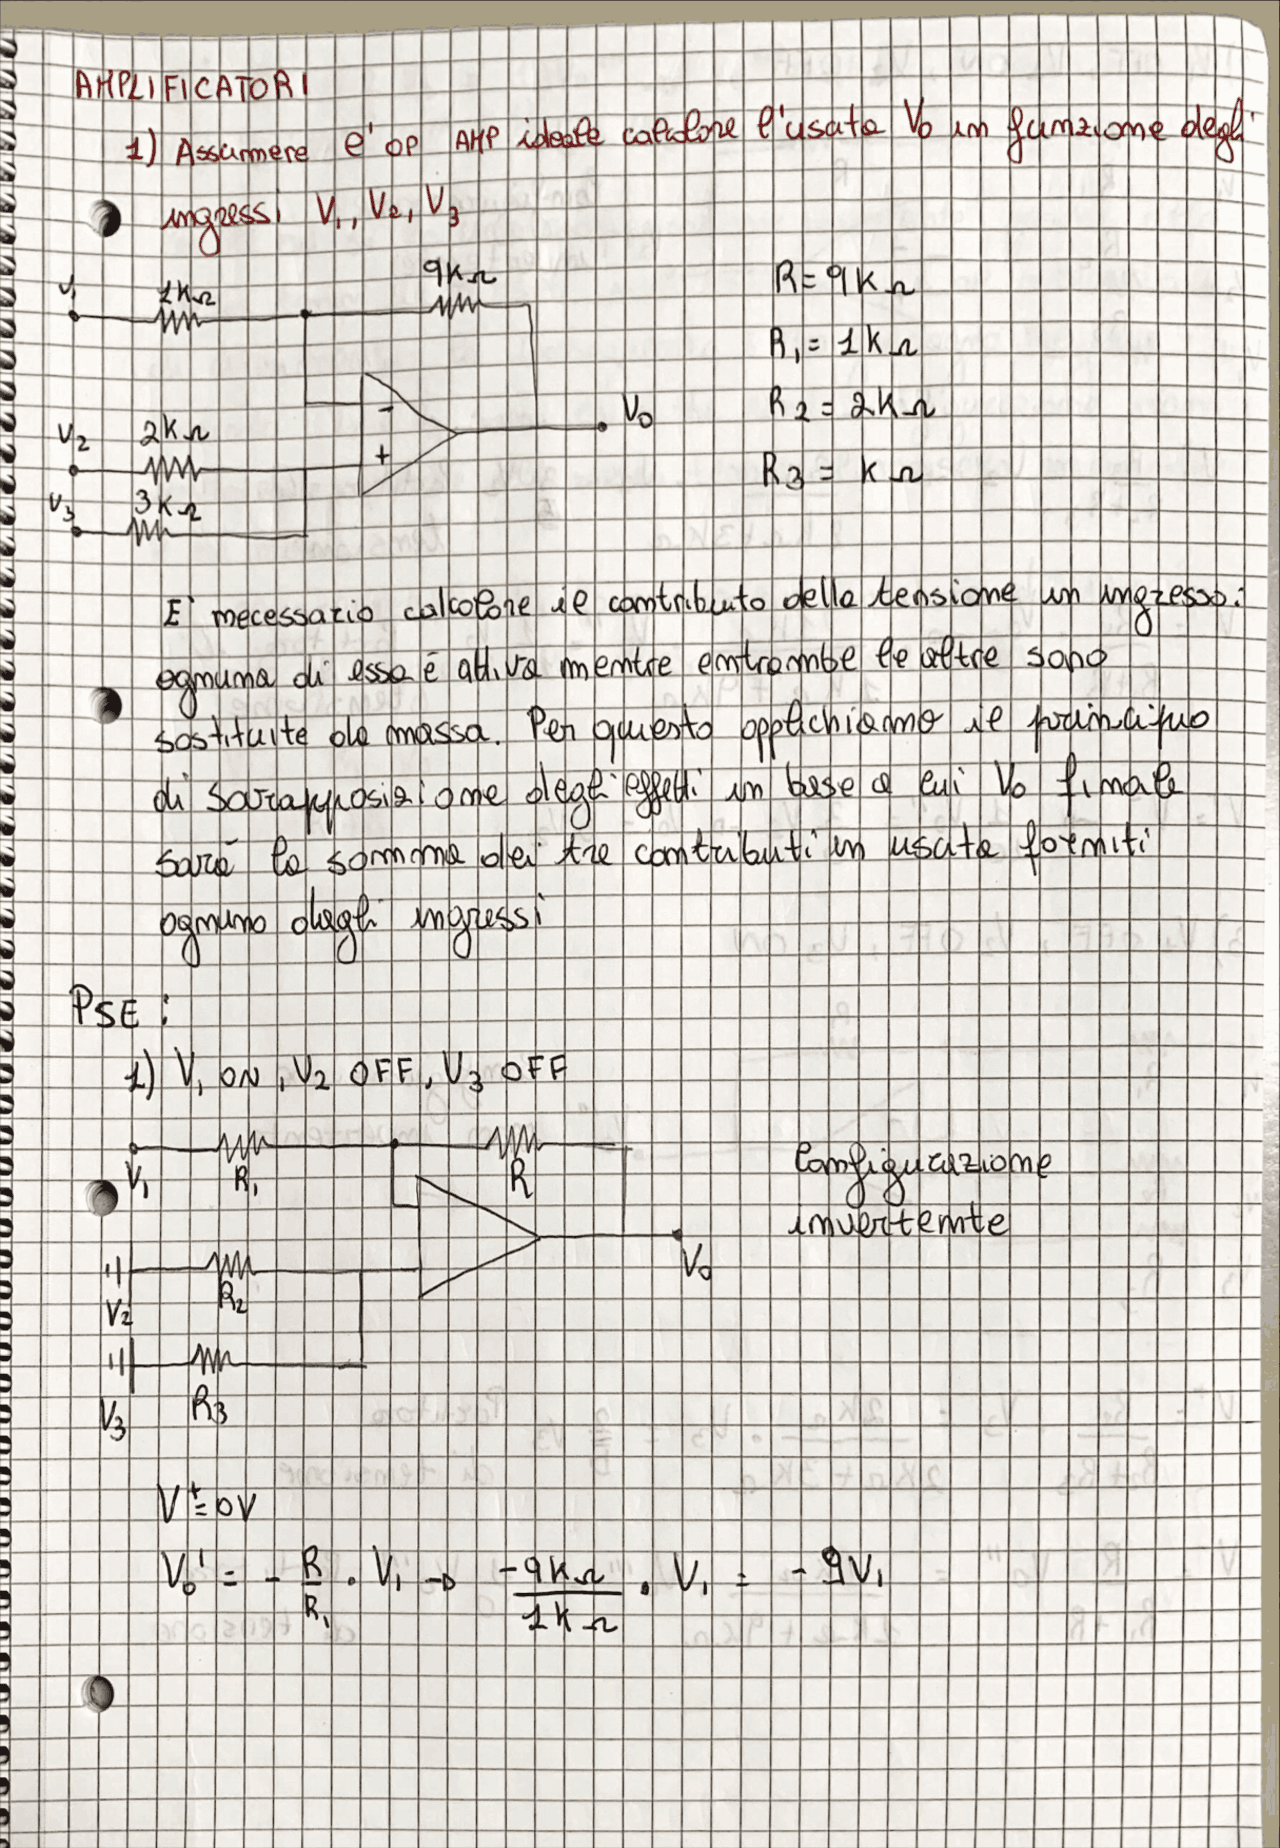 AMPLIFICATORI
1) Assumere l'op AMP ideale calcolare l'uscita V0 in funzione degli
ingressi V1, V2, V3
V1 1KΩ 9KΩ
R = 9KΩ
R1 = 1KΩ
- V0
R2 = 2KΩ
V2 2KΩ
+
R3 = KΩ
V3 3KΩ
E' necessario calcolare il contributo della tensione in ingresso:
ognuna di esse è attiva mentre entrambe le altre sono
sostituite da massa. Per questo applichiamo il principio
di sovrapposizione degli effetti in base a cui V0 finale
sarà la somma dei tre contributi in uscita forniti
ognuno dagli ingressi
PSE:
1) V1 ON, V2 OFF, V3 OFF
V1 R1 R
Configurazione
invertente
V0
V2 R2
V3 R3
V+ = 0V
V0' = - R/R1 . V1 → -9KΩ/1KΩ . V1 = -9V1